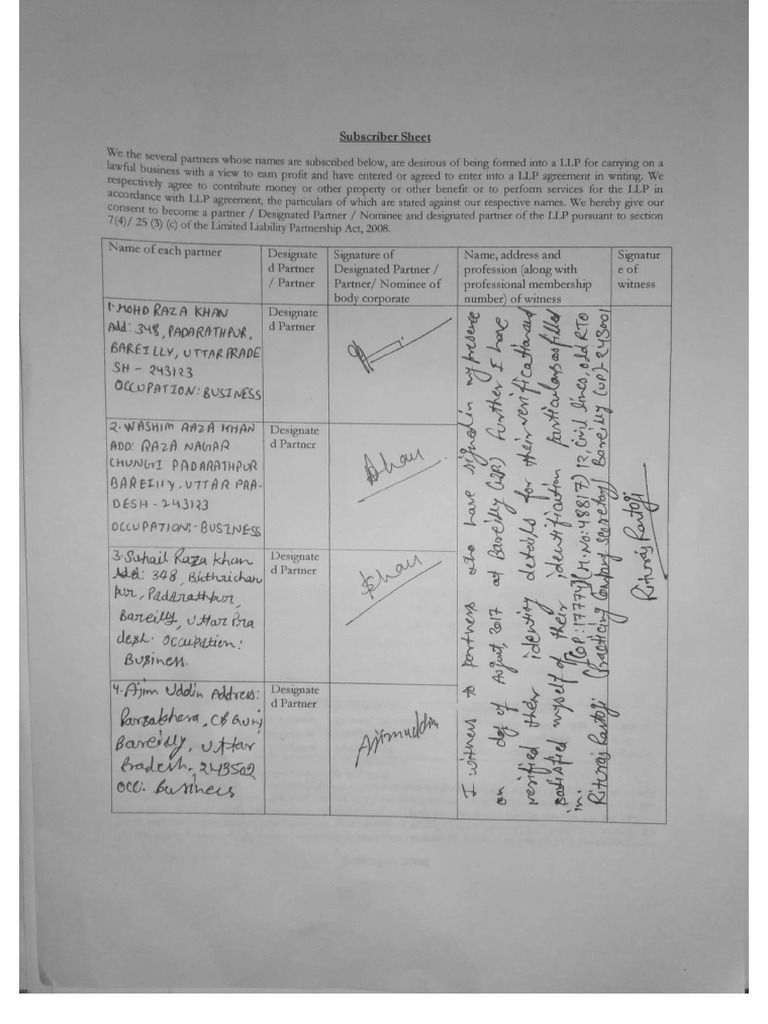 Subscriber Sheet
We the several partners whose names are subscribed below, are desirous of being formed into a LLP for carrying on a
lawful business with a view to earn profit and have entered or agreed to enter into a LLP agreement in writing. We
respectively agree to contribute money or other property or other benefit or to perform services for the LLP in
accordance with LLP agreement, the particulars of which are stated against our respective names. We hereby give our
consent to become a partner / Designated Partner / Nominee and designated partner of the LLP pursuant to section
7(4)/ 25 (3) (c) of the Limited Liability Partnership Act, 2008.
Name of each partner
Designate
d Partner
/ Partner
Signature of
Designated Partner /
Partner/ Nominee of
body corporate
Name, address and
profession (along with
professional membership
number) of witness
Signatur
e of
witness
1. MOHD RAZA KHAN
Add: 348, PADARATHPUR,
BAREILLY, UTTAR PRADE
SH - 243123
OCCUPATION: BUSINESS
Designate
d Partner
2. WASHIM RAZA KHAN
ADD: RAZA NAGAR
CHUNGI PADARATHPUR
BAREILLY, UTTAR PRA-
DESH - 243123
OCCUPATION:- BUSINESS
Designate
d Partner
3. Suhail Raza Khan
Add: 348, Bithrichan
pur, Padarathpur,
Bareilly, Uttar Pra
desh. Occupation:
Business
Designate
d Partner
4. Ajim Uddin Address:
CB Gunj
Bareilly, Uttar
Pradesh, 243502
Occ: Business
Designate
d Partner
Ajimuddin
I witness to partners who have signed in my presence
on day of August, 2017 at Bareilly (U.P.) Further I have
verified their identity details for their verification and
satisfied myself of their identification particulars as filled
in.
(COP: 17774) (M.No: 48817) 12, Civil lines, old RTO
Rituraj Rastogi (Practicing Company Secretary) Bareilly (UP)-243001
Rituraj Rastogi